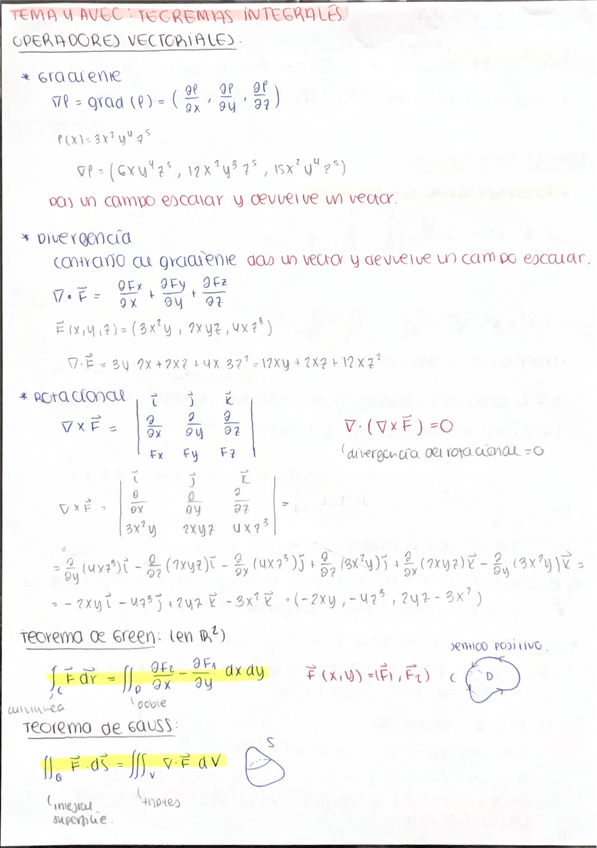 TEMA 4 AVEC: TEOREMAS INTEGRALES.
OPERADORES VECTORIALES.
* Gradiente
∇φ = grad (φ) = (∂φ/∂x, ∂φ/∂y, ∂φ/∂z)
φ(x) = 3x²y⁴z⁵
∇φ = (6xy⁴z⁵, 12x²y³z⁵, 15x²y⁴z⁵)
Das un campo escalar y devuelve un vector.
* Divergencia
Contrario al gradiente das un vector y devuelve un campo escalar.
∇·F⃗ = ∂Fx/∂x + ∂Fy/∂y + ∂Fz/∂z
F⃗(x,y,z) = (3x²y, 2xyz, 4xz³)
∇·F⃗ = 3y 2x + 2xz + 4x 3z² = 12xy + 2xz + 12xz²
* Rotacional
∇×F⃗ = | i⃗ j⃗ k⃗ |
| ∂/∂x ∂/∂y ∂/∂z |
| Fx Fy Fz |
∇·(∇×F⃗) = 0
divergencia del rotacional = 0
∇×F⃗ = | i⃗ j⃗ k⃗ |
| ∂/∂x ∂/∂y ∂/∂z | =
| 3x²y 2xyz 4xz³ |
= ∂/∂y (4xz³)i⃗ - ∂/∂z (2xyz)i⃗ - ∂/∂x (4xz³)j⃗ + ∂/∂z (3x²y)j⃗ + ∂/∂x (2xyz)k⃗ - ∂/∂y (3x²y)k⃗ =
= -2xyi⃗ - 4z³j⃗ + 2yz k⃗ - 3x²k⃗ = (-2xy, -4z³, 2yz - 3x²)
Teorema de Green: (en ℝ²)
sentido positivo.
∫c F⃗ dr⃗ = ∬D ∂F₂/∂x - ∂F₁/∂y dx dy
F⃗(x,y) = (F⃗₁, F⃗₂)
C D
doble
Teorema de GAUSS:
S
∬ F⃗·dS⃗ = ∭V ∇·F⃗ dV
integral
superficie.